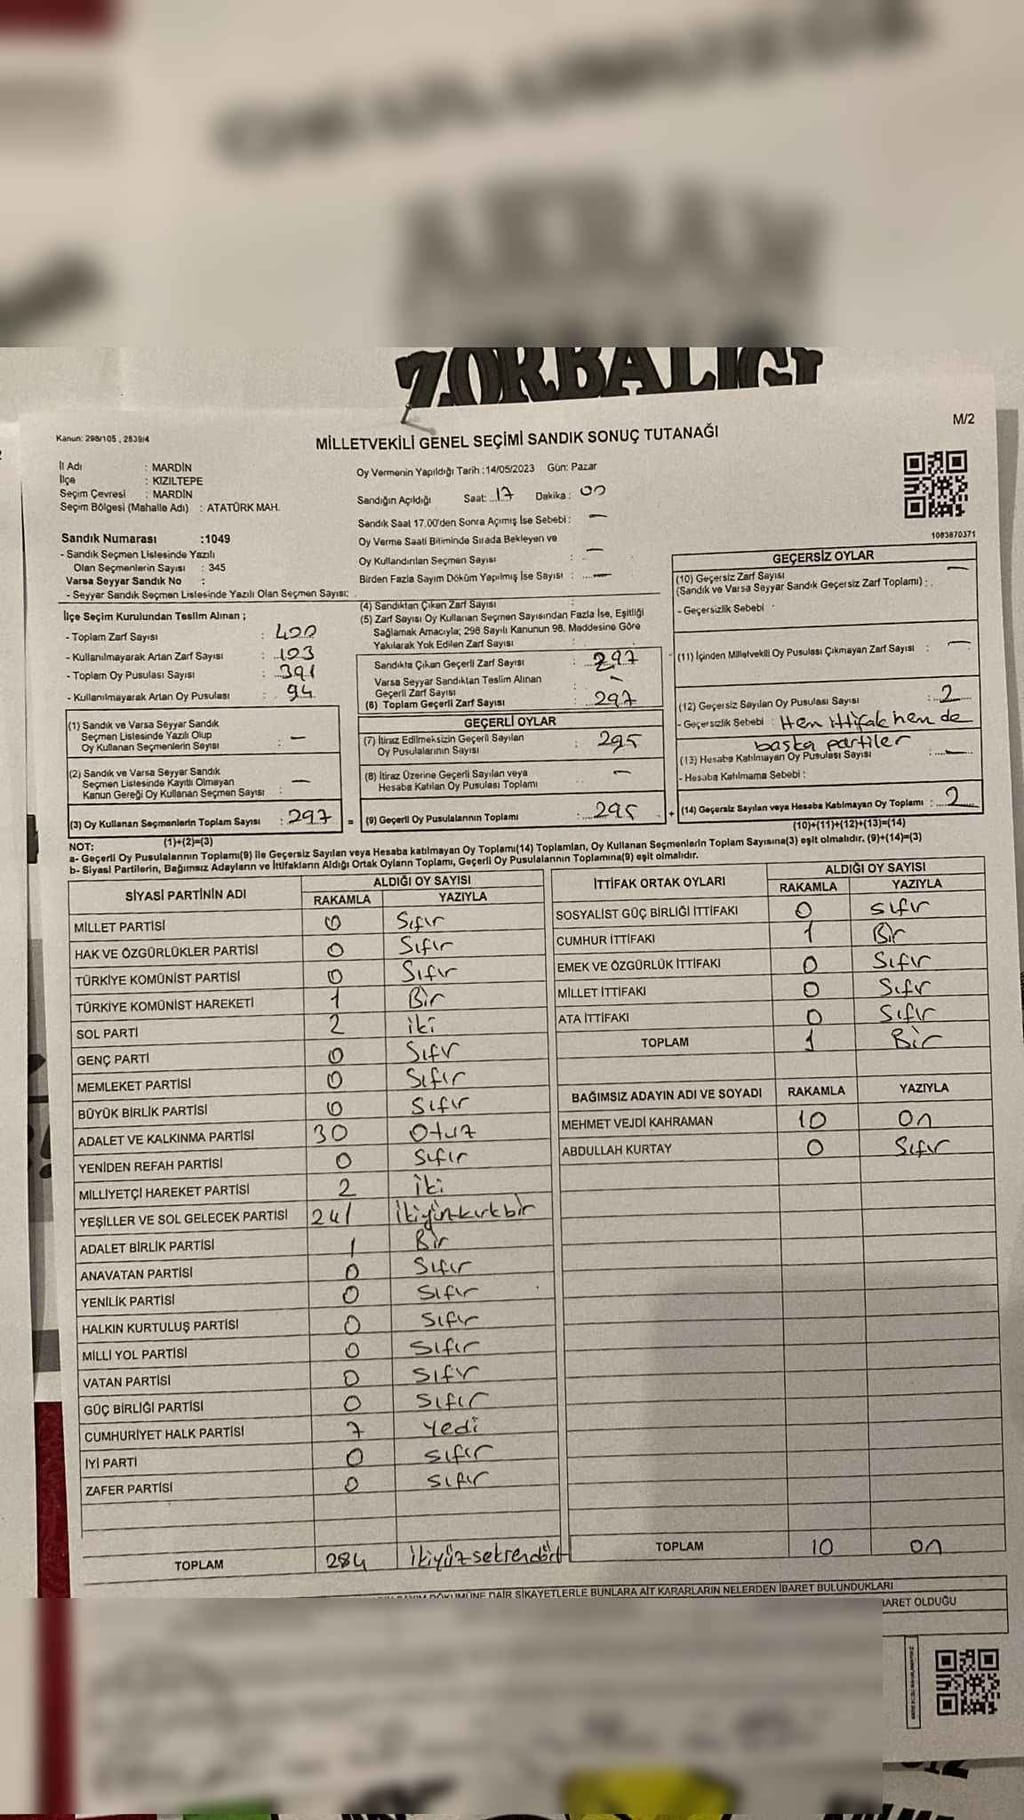 ZORBALIĞI
Kanun: 298/105 , 2839/4
M/2
MİLLETVEKİLİ GENEL SEÇİMİ SANDIK SONUÇ TUTANAĞI
İl Adı : MARDİN
İlçe : KIZILTEPE
Seçim Çevresi : MARDİN
Seçim Bölgesi (Mahalle Adı) : ATATÜRK MAH.
Sandık Numarası :1049
- Sandık Seçmen Listesinde Yazılı
Olan Seçmenlerin Sayısı : 345
Varsa Seyyar Sandık No :
- Seyyar Sandık Seçmen Listesinde Yazılı Olan Seçmen Sayısı:
Oy Vermenin Yapıldığı Tarih :14/05/2023 Gün: Pazar
Sandığın Açıldığı Saat: 17 Dakika : 00
Sandık Saat 17.00'den Sonra Açımış İse Sebebi : —
Oy Verme Saati Bitiminde Sırada Bekleyen ve
Oy Kullandırılan Seçmen Sayısı : —
Birden Fazla Sayım Döküm Yapılmış İse Sayısı : —
1083870371
İlçe Seçim Kurulundan Teslim Alınan ;
- Toplam Zarf Sayısı : 400
- Kullanılmayarak Artan Zarf Sayısı : 103
- Toplam Oy Pusulası Sayısı : 391
- Kullanılmayarak Artan Oy Pusulası : 94
(1) Sandık ve Varsa Seyyar Sandık
Seçmen Listesinde Yazılı Olup
Oy Kullanan Seçmenlerin Sayısı : —
(2) Sandık ve Varsa Seyyar Sandık
Seçmen Listesinde Kayıtlı Olmayan
Kanun Gereği Oy Kullanan Seçmen Sayısı : —
(3) Oy Kullanan Seçmenlerin Toplam Sayısı : 297
(1)+(2)=(3)
(4) Sandıktan Çıkan Zarf Sayısı :
(5) Zarf Sayısı Oy Kullanan Seçmen Sayısından Fazla İse, Eşitliği
Sağlamak Amacıyla; 298 Sayılı Kanunun 98. Maddesine Göre
Yakılarak Yok Edilen Zarf Sayısı :
Sandıkta Çıkan Geçerli Zarf Sayısı : 297
Varsa Seyyar Sandıktan Teslim Alınan
Geçerli Zarf Sayısı : —
(6) Toplam Geçerli Zarf Sayısı : 297
GEÇERLİ OYLAR
(7) İtiraz Edilmeksizin Geçerli Sayılan
Oy Pusulalarının Sayısı : 295
(8) İtiraz Üzerine Geçerli Sayılan veya
Hesaba Katılan Oy Pusulası Toplamı : —
= (9) Geçerli Oy Pusulalarının Toplamı : 295
GEÇERSİZ OYLAR
(10) Geçersiz Zarf Sayısı —
(Sandık ve Varsa Seyyar Sandık Geçersiz Zarf Toplamı) :
- Geçersizlik Sebebi
(11) İçinden Milletvekili Oy Pusulası Çıkmayan Zarf Sayısı : —
(12) Geçersiz Sayılan Oy Pusulası Sayısı : 2
- Geçersizlik Sebebi : Hem ittifak hem de
başka partiler
(13) Hesaba Katılmayan Oy Pusulası Sayısı : —
- Hesaba Katılmama Sebebi :
+ (14) Geçersiz Sayılan veya Hesaba Katılmayan Oy Toplamı : 2
(10)+(11)+(12)+(13)=(14)
NOT:
a- Geçerli Oy Pusulalarının Toplamı(9) ile Geçersiz Sayılan veya Hesaba katılmayan Oy Toplamı(14) Toplamları, Oy Kullanan Seçmenlerin Toplam Sayısına(3) eşit olmalıdır. (9)+(14)=(3)
b- Siyasi Partilerin, Bağımsız Adayların ve İttifakların Aldığı Ortak Oyların Toplamı, Geçerli Oy Pusulalarının Toplamına(9) eşit olmalıdır.
SİYASİ PARTİNİN ADI ALDIĞI OY SAYISI
RAKAMLA YAZIYLA
MİLLET PARTİSİ 0 Sıfır
HAK VE ÖZGÜRLÜKLER PARTİSİ 0 Sıfır
TÜRKİYE KOMÜNİST PARTİSİ 0 Sıfır
TÜRKİYE KOMÜNİST HAREKETİ 1 Bir
SOL PARTİ 2 iki
GENÇ PARTİ 0 Sıfır
MEMLEKET PARTİSİ 0 Sıfır
BÜYÜK BİRLİK PARTİSİ 0 Sıfır
ADALET VE KALKINMA PARTİSİ 30 Otuz
YENİDEN REFAH PARTİSİ 0 Sıfır
MİLLİYETÇİ HAREKET PARTİSİ 2 iki
YEŞİLLER VE SOL GELECEK PARTİSİ 241 ikiyüzkırkbir
ADALET BİRLİK PARTİSİ 1 Bir
ANAVATAN PARTİSİ 0 Sıfır
YENİLİK PARTİSİ 0 Sıfır
HALKIN KURTULUŞ PARTİSİ 0 Sıfır
MİLLİ YOL PARTİSİ 0 Sıfır
VATAN PARTİSİ 0 Sıfır
GÜÇ BİRLİĞİ PARTİSİ 0 Sıfır
CUMHURİYET HALK PARTİSİ 7 Yedi
İYİ PARTİ 0 Sıfır
ZAFER PARTİSİ 0 Sıfır
TOPLAM 284 ikiyüzseksendört
İTTİFAK ORTAK OYLARI ALDIĞI OY SAYISI
RAKAMLA YAZIYLA
SOSYALİST GÜÇ BİRLİĞİ İTTİFAKI 0 Sıfır
CUMHUR İTTİFAKI 1 Bir
EMEK VE ÖZGÜRLÜK İTTİFAKI 0 Sıfır
MİLLET İTTİFAKI 0 Sıfır
ATA İTTİFAKI 0 Sıfır
TOPLAM 1 Bir
BAĞIMSIZ ADAYIN ADI VE SOYADI RAKAMLA YAZIYLA
MEHMET VEJDİ KAHRAMAN 10 On
ABDULLAH KURTAY 0 Sıfır
TOPLAM 10 on
DÖKÜMÜNE DAİR ŞİKAYETLERLE BUNLARA AİT KARARLARIN NELERDEN İBARET BULUNDUKLARI
İBARET OLDUĞU